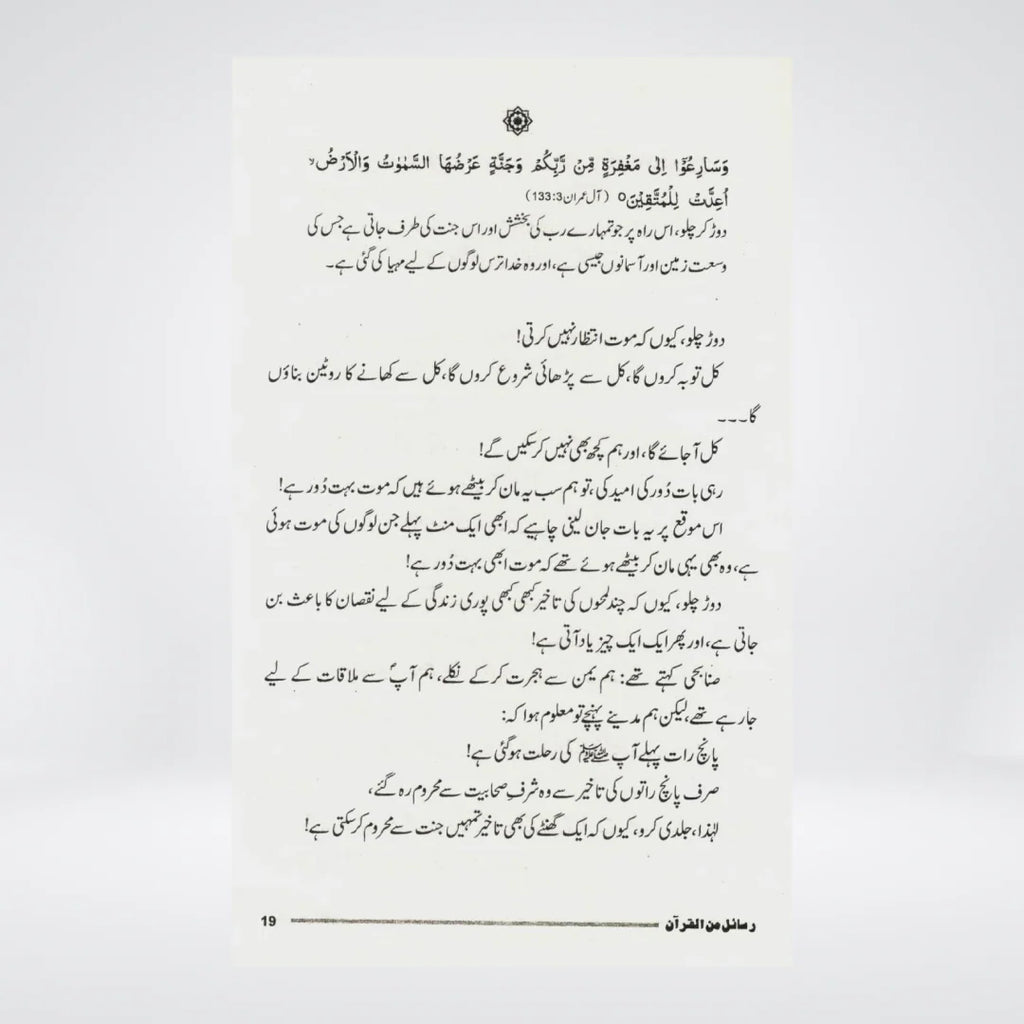 وَسَارِعُوْٓا اِلٰى مَغْفِرَةٍ مِّنْ رَّبِّكُمْ وَجَنَّةٍ عَرْضُهَا السَّمٰوٰتُ وَالْاَرْضُ ۙ
اُعِدَّتْ لِلْمُتَّقِيْنَ ○ (آل عمران 133:3)
دوڑ کر چلو، اس راہ پر جو تمہارے رب کی بخشش اور اس جنت کی طرف جاتی ہے جس کی
وسعت زمین اور آسمانوں جیسی ہے، اور وہ خدا ترس لوگوں کے لیے مہیا کی گئی ہے۔
دوڑ چلو، کیوں کہ موت انتظار نہیں کرتی!
کل توبہ کروں گا، کل سے پڑھائی شروع کروں گا، کل سے کھانے کا روٹین بناؤں
گا۔۔۔
کل آ جائے گا، اور ہم کچھ بھی نہیں کر سکیں گے!
رہی بات دُور کی امید کی، تو ہم سب یہ مان کر بیٹھے ہوئے ہیں کہ موت بہت دُور ہے!
اس موقع پر یہ بات جان لینی چاہیے کہ ابھی ایک منٹ پہلے جن لوگوں کی موت ہوئی
ہے، وہ بھی یہی مان کر بیٹھے ہوئے تھے کہ موت ابھی بہت دُور ہے!
دوڑ چلو، کیوں کہ چند لمحوں کی تاخیر کبھی کبھی پوری زندگی کے لیے نقصان کا باعث بن
جاتی ہے، اور پھر ایک ایک چیز یاد آتی ہے!
صنابحی کہتے تھے: ہم یمن سے ہجرت کر کے نکلے، ہم آپؐ سے ملاقات کے لیے
جا رہے تھے، لیکن ہم مدینے پہنچے تو معلوم ہوا کہ:
پانچ رات پہلے آپ ﷺ کی رحلت ہو گئی ہے!
صرف پانچ راتوں کی تاخیر سے وہ شرفِ صحابیت سے محروم رہ گئے،
لہٰذا، جلدی کرو، کیوں کہ ایک گھنٹے کی بھی تاخیر تمہیں جنت سے محروم کر سکتی ہے!
رسائل من القرآن 19